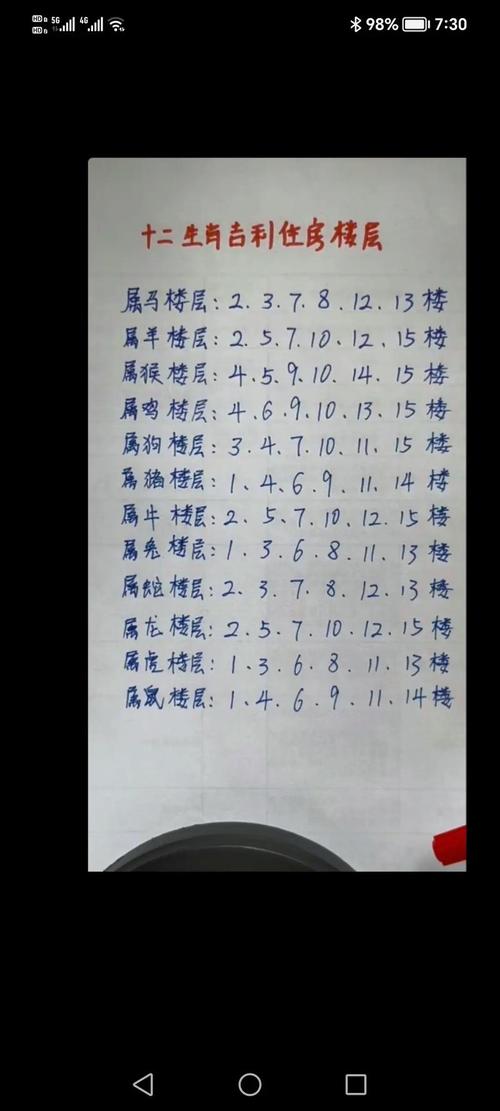 HD 5G 4G 98% 7:30
HD
十二生肖吉利住房楼层
属马楼层：2、3、7、8、12、13楼
属羊楼层：2、5、7、10、12、15楼
属猴楼层：4、5、9、10、14、15楼
属鸡楼层：4、6、9、10、13、15楼
属狗楼层：3、4、7、10、11、15楼
属猪楼层：1、4、6、9、11、14楼
属牛楼层：2、5、7、10、12、15楼
属兔楼层：1、3、6、8、11、13楼
属蛇楼层：2、3、7、8、12、13楼
属龙楼层：2、5、7、10、12、15楼
属虎楼层：1、3、6、8、11、13楼
属鼠楼层：1、4、6、9、11、14楼